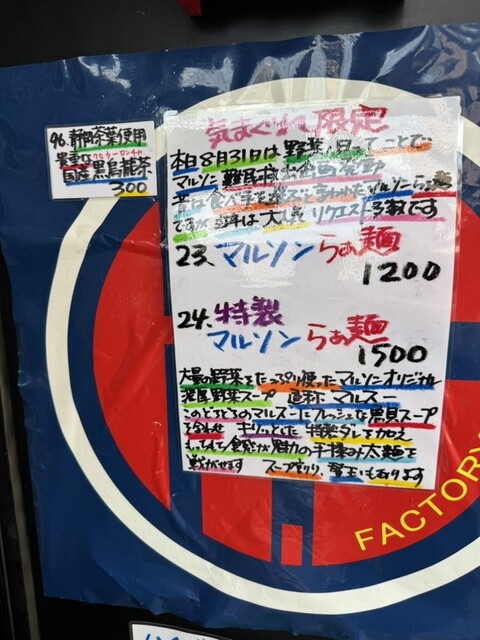 96. 静岡茶葉使用
貴重な クロウーロンチャ
国産黒烏龍茶
300
気まぐれ限定
本日8月31日は野菜の日ってことで
マルソン
昔は食べ手を選ぶと言われたマルソンらぁ麺
ですが近年は大人気リクエスト多数です
23、マルソンらぁ麺
1200
24、特製
マルソンらぁ麺
1500
大量の野菜をたっぷり使ったマルソンオリジナル
濃厚野菜スープ 通称マルスー
このどろどろのマルスーにフレッシュな魚貝スープ
を合わせ キリッとした特製ダレを加え
食感が魅力の手揉み太麺を
スープ割り、
あります
FACTORY